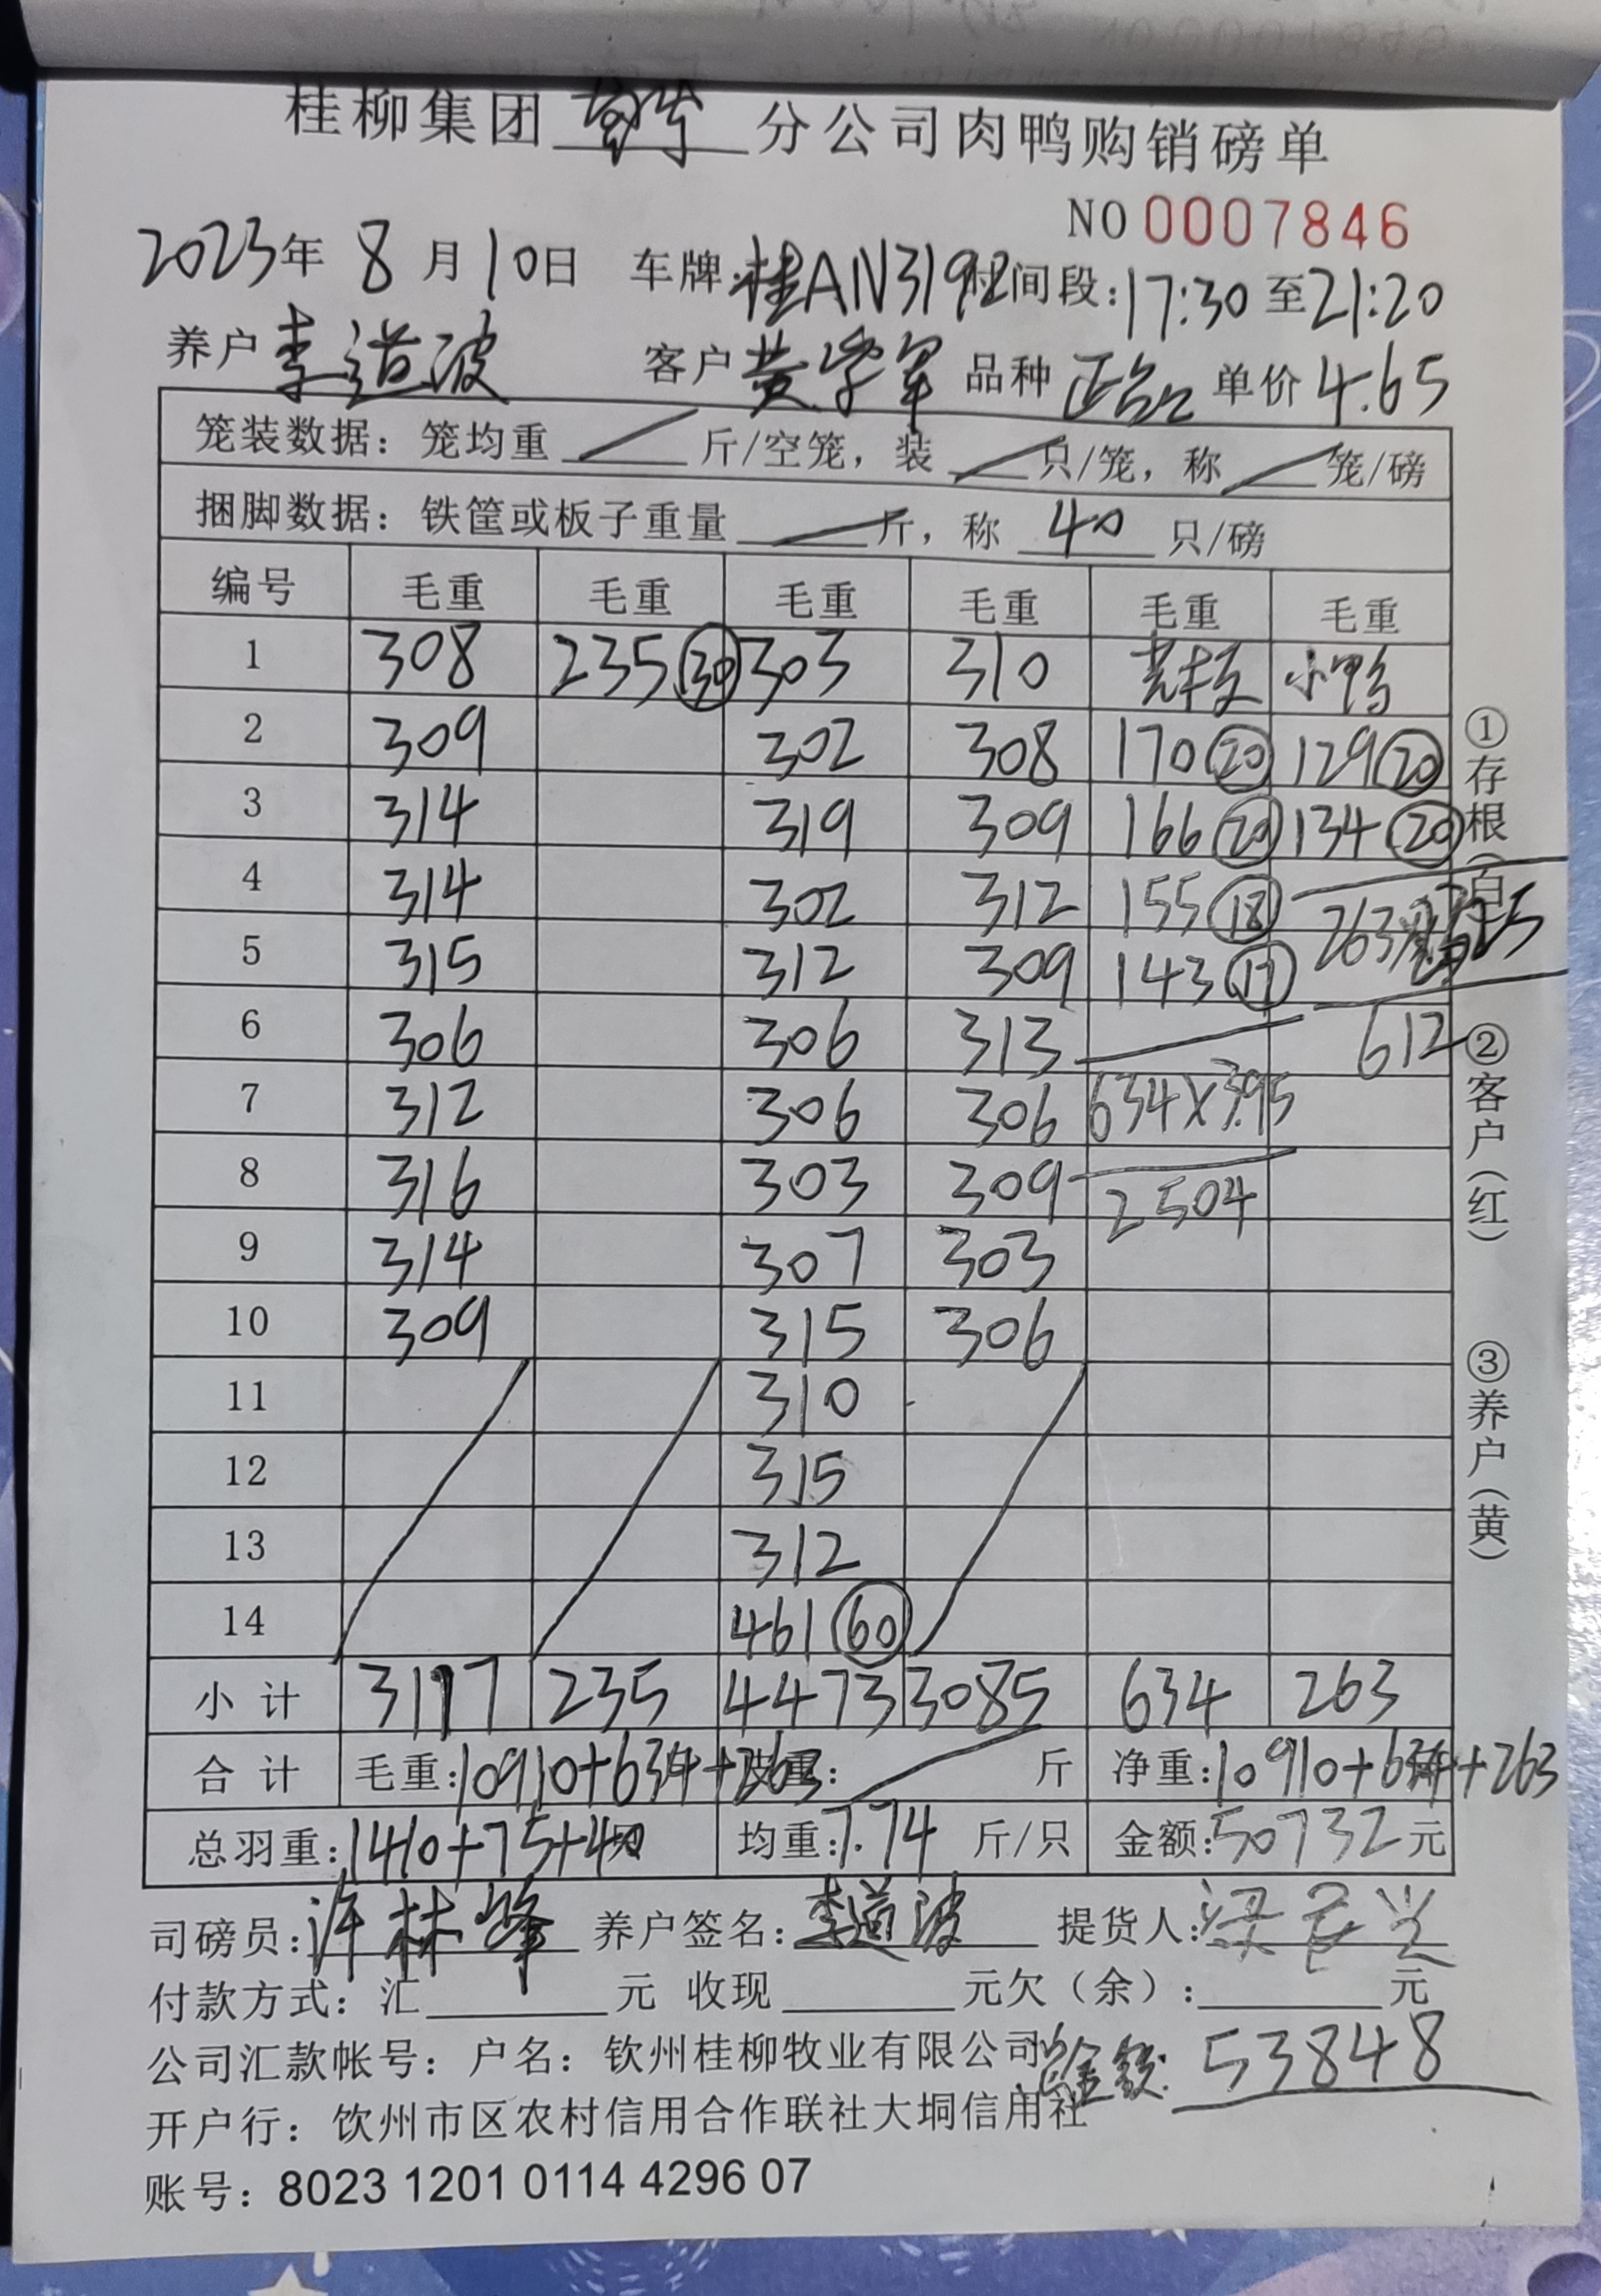 桂柳集团 分公司肉鸭购销磅单
NO 0007846
2023年 8月10日 车牌:桂AN3192 时间段:17:30至21:20
养户 李道波 客户 黄学军 品种 正品 单价 4.65
笼装数据：笼均重 / 斤/空笼，装 / 只/笼，称 / 笼/磅
捆脚数据：铁筐或板子重量 / 斤，称 40 只/磅
编号 毛重 毛重 毛重 毛重 毛重 毛重
1 308 235(30) 303 310 小鸭
2 309 302 308 170(20) 129(20)
3 314 319 309 166(20) 134(20)
4 314 302 312 155(18)
5 315 312 309 143(17) 263
6 306 306 313 612
7 312 306 306 634×3.95
8 316 303 309 2504
9 314 307 303
10 309 315 306
11 310
12 315
13 312
14 461(60)
小计 3117 235 4473 3085 634 263
合计 毛重:10910+634+263 皮重: / 斤 净重:10910+634+263
总羽重:1410+75+40 均重:7.74 斤/只 金额:50732元
司磅员:许林峰 养户签名:李道波 提货人:
付款方式：汇 元 收现 元欠（余）: 元
公司汇款帐号：户名：钦州桂柳牧业有限公司 总金额: 53848
开户行：钦州市区农村信用合作联社大垌信用社
账号：8023 1201 0114 4296 07
①存根（白）
②客户（红）
③养户（黄）